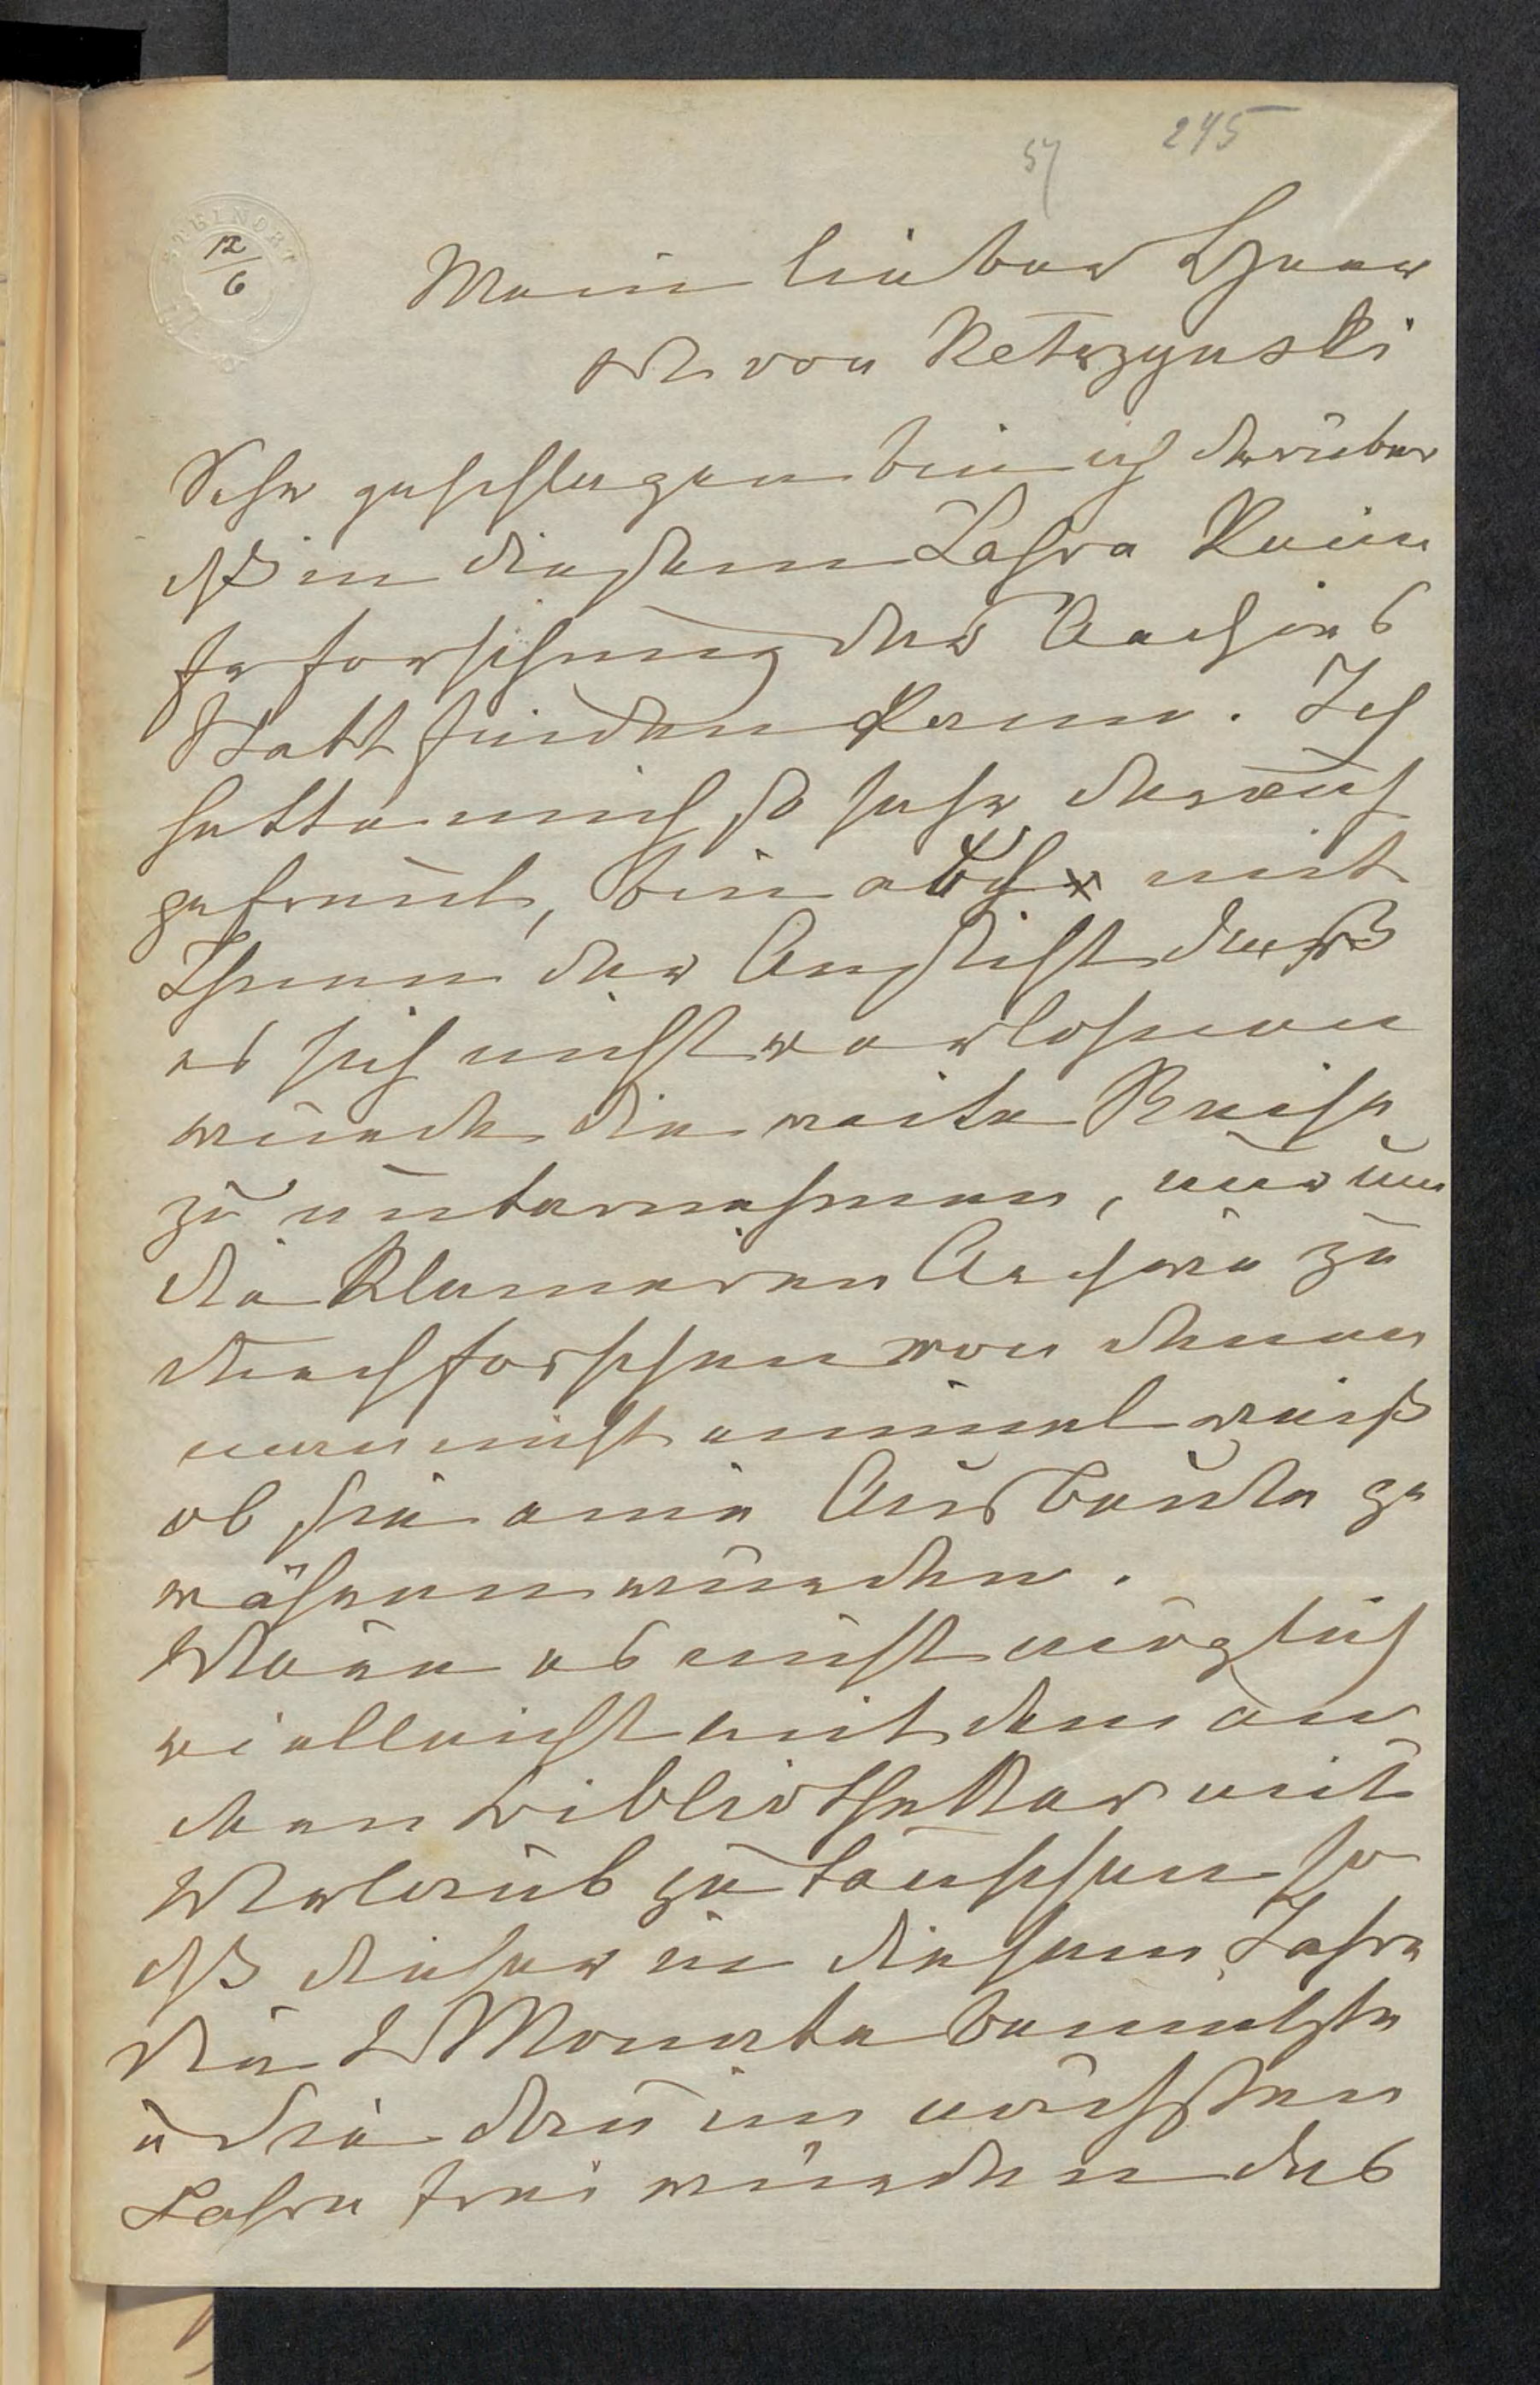 245
57
STEINORT
12
6
Mein lieber Herr
Dr von Ketrzynski
Sehr geschlagen bin ich darüber
dß in diesem Jahre keine
Erforschung des Archivs
Statt finden kann. Ich
hatte mich so sehr darauf
gefreut, bin aber mit
Ihnen der Ansicht daß
es sich nicht verlohnen
würde die weite Reise
zu unternehmen, nur um
die kleineren Archive zu
durchforschen von denen
man nicht einmal weiß
ob sie eine Ausbeute ge
währen würden.
Wäre es nicht möglich
vielleicht mit dem an
dern Bibliothekar mit
Urlaub zu tauschen so
dß dieser in diesem Jahre
die 2 Monate benutzte
u Sie dan im nächsten
Jahre frei würden das